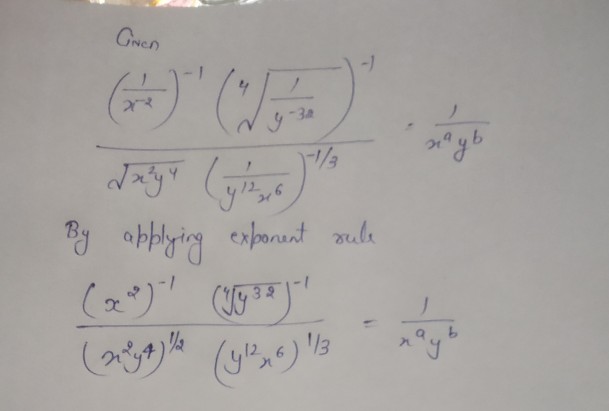 Given
(1/x^-2)^-1 (∜(1/y^-32))^-1 / √(x^2y^4) (1/(y^12x^6))^-1/3 = 1/(x^a y^b)
By applying exponent rule
(x^2)^-1 (∜(y^32))^-1 / (x^2y^4)^1/2 (y^12x^6)^1/3 = 1/(x^a y^b)